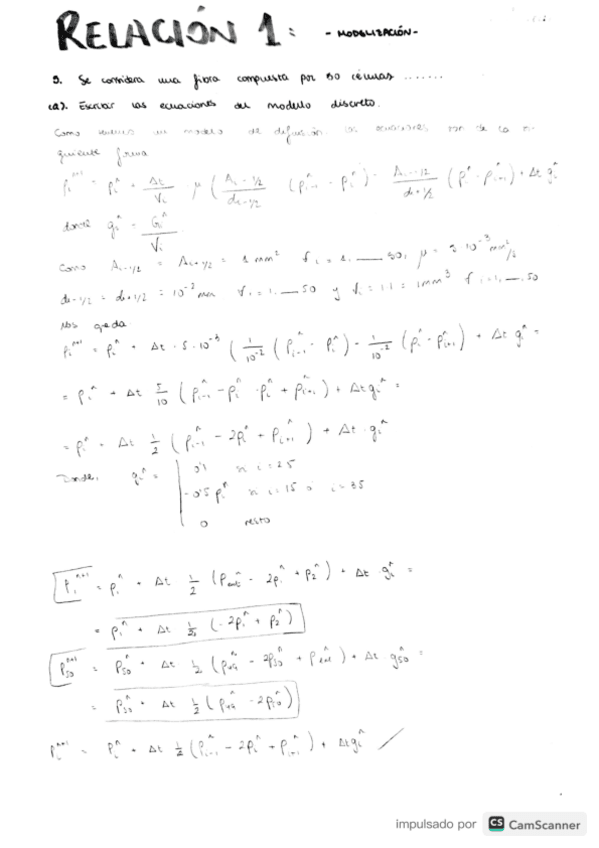 RELACIÓN 1: - MODELIZACIÓN -
9. Se considera una fibra compuesta por 50 células .......
(a). Escribir las ecuaciones del modelo discreto.
Como un modelo de difusión las ecuaciones son de la si-
guiente forma
p_i^{n+1} = p_i^n + Δt/V_i · μ ( A_{i-1/2}/d_{i-1/2} (p_{i-1}^n - p_i^n) - A_{i+1/2}/d_{i+1/2} (p_i^n - p_{i+1}^n) + Δt g_i^n
donde g_i^n = G_i^n/V_i
Como A_{i-1/2} = A_{i+1/2} = 1 mm² ∀ i = 1, — 50, μ = 10^{-3} mm²/s
d_{i-1/2} = d_{i+1/2} = 10^{-2} mm ∀ i = 1, — 50 y V_i = 1·1 = 1mm³ ∀ i = 1, — 50
nos queda
p_i^{n+1} = p_i^n + Δt · 5·10^{-3} ( 1/10^{-2} (p_{i-1}^n - p_i^n) - 1/10^{-2} (p_i^n - p_{i+1}^n) + Δt g_i^n =
= p_i^n + Δt 5/10 (p_{i-1}^n - p_i^n - p_i^n + p_{i+1}^n) + Δt g_i^n =
= p_i^n + Δt 1/2 (p_{i-1}^n - 2p_i^n + p_{i+1}^n) + Δt · g_i^n
Donde, g_i^n = | 0'1 si i = 25
-0'5 p_i^n si i = 15 ó i = 35
0 resto
p_1^{n+1} = p_1^n + Δt 1/2 (p_{ext}^n - 2p_1^n + p_2^n) + Δt · g_1^n =
= p_1^n + Δt 1/2 (-2p_1^n + p_2^n)
p_{50}^{n+1} = p_{50}^n + Δt 1/2 (p_{49}^n - 2p_{50}^n + p_{ext}^n) + Δt g_{50}^n =
= p_{50}^n + Δt 1/2 (p_{49}^n - 2p_{50}^n)
p_i^{n+1} = p_i^n + Δt 1/2 (p_{i-1}^n - 2p_i^n + p_{i+1}^n) + Δt g_i^n
impulsado por CS CamScanner